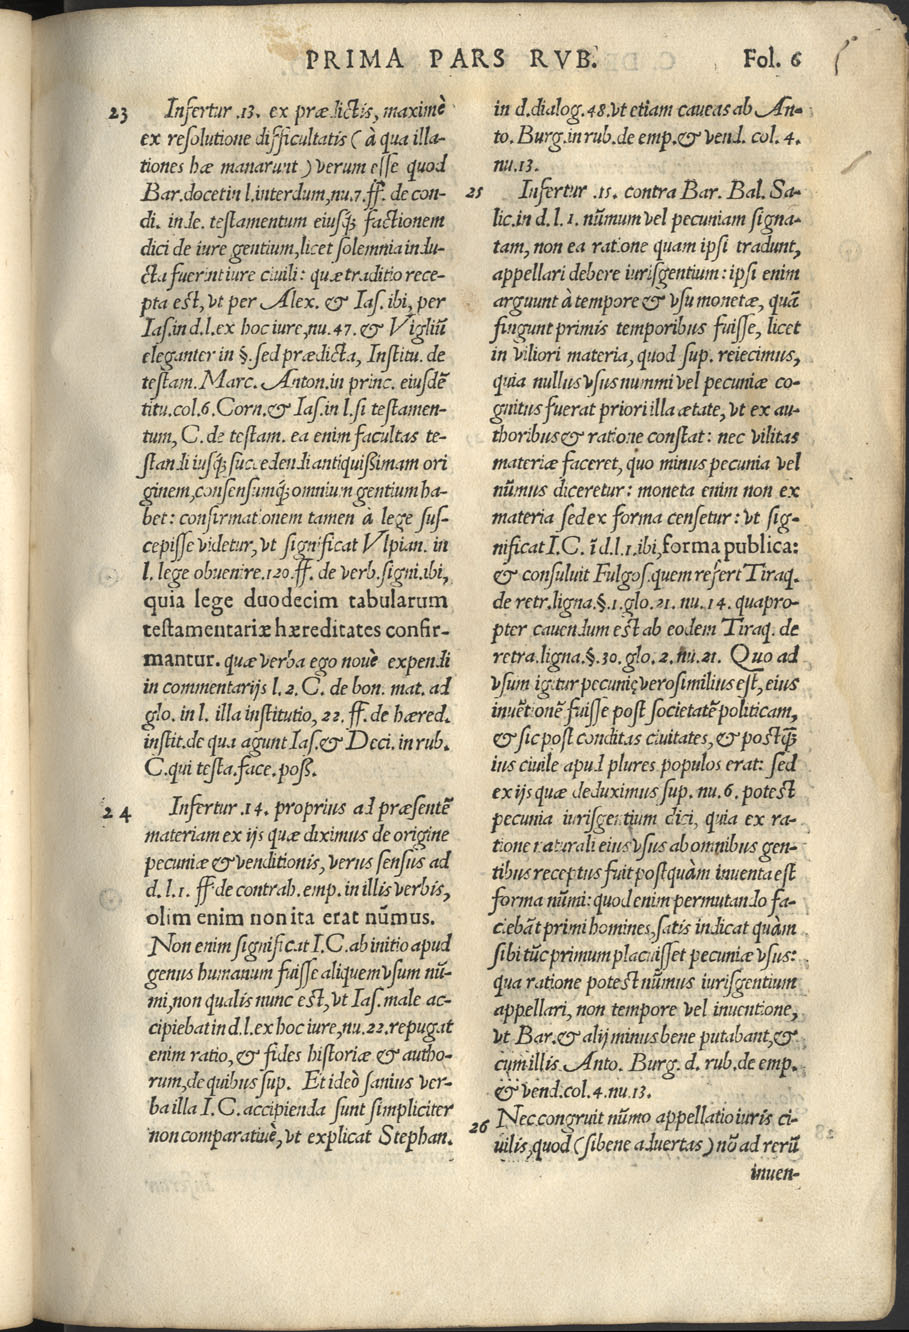 PRIMA PARS RVB. Fol. 6
23 Infertur .13. ex prædictis, maximè
ex resolutione difficultatis (à qua illa-
tiones hæ manarunt) verum esse quod
Bar. docet in l. interdum, nu. 7. ff. de con-
di. inde. testamentum eiusq́; factionem
dici de iure gentium, licet solemnia indu-
cta fuerint iure ciuili: quæ traditio rece-
pta est, vt per Alex. & Ias. ibi, per
Ias. in d. l. ex hoc iure, nu. 47. & Vigliũ
eleganter in §. sed prædicta, Institu. de
testam. Marc. Anton. in princ. eiusdẽ
titu. col. 6. Corn. & Ias. in l. si testamen-
tum, C. de testam. ea enim facultas te-
standi iusq́; succedendi antiquißimam ori
ginem, consensumq́; omnium gentium ha-
bet: confirmationem tamen à lege sus-
cepisse videtur, vt significat Vlpian. in
l. lege obuenire. 120. ff. de verb. signi. ibi,
quia lege duodecim tabularum
testamentariæ hæreditates confir-
mantur. quæ verba ego nouè expendi
in commentarijs l. 2. C. de bon. mat. ad
glo. in l. illa institutio, 22. ff. de hæred.
instit. de qua agunt Ias. & Deci. in rub.
C. qui testa. face. poß.
24 Infertur .14. proprius ad præsentẽ
materiam ex ijs quæ diximus de origine
pecuniæ & venditionis, verus sensus ad
d. l. 1. ff. de contrah. emp. in illis verbis,
olim enim non ita erat nũmus.
Non enim significat I.C. ab initio apud
genus humanum fuisse aliquem vsum nũ-
mi, non qualis nunc est, vt Ias. male ac-
cipiebat in d. l. ex hoc iure, nu. 22. repugat
enim ratio, & fides historiæ & autho-
rum, de quibus sup. Et ideò sanius ver-
ba illa I.C. accipienda sunt simpliciter
non comparatiuè, vt explicat Stephan.
in d. dialog. 48. vt etiam caueas ab An-
to. Burg. in rub. de emp. & vend. col. 4.
nu. 13.
25 Infertur .15. contra Bar. Bal. Sa-
lic. in d. l. 1. nũmum vel pecuniam signa-
tam, non ea ratione quam ipsi tradunt,
appellari debere iurisgentium: ipsi enim
arguunt à tempore & vsu monetæ, quã
fingunt primis temporibus fuisse, licet
in viliori materia, quod sup. reiecimus,
quia nullus vsus nummi vel pecuniæ co-
gnitus fuerat priori illa ætate, vt ex au-
thoribus & ratione constat: nec vilitas
materiæ faceret, quo minus pecunia vel
nũmus diceretur: moneta enim non ex
materia sed ex forma censetur: vt sig-
nificat I.C. ĩ d. l. 1. ibi, forma publica:
& consuluit Fulgos. quem refert Tiraq.
de retr. ligna. §. 1. glo. 21. nu. 14. quapro-
pter cauendum est ab eodem Tiraq. de
retra. ligna. §. 30. glo. 2. nu. 21. Quo ad
vsum igitur pecunię verosimilius est, eius
inuẽtionẽ fuisse post societatẽ politicam,
& sic post conditas ciuitates, & postq̃
ius ciuile apud plures populos erat: sed
ex ijs quæ deduximus sup. nu. 6. potest
pecunia iurisgentium dici, quia ex ra-
tione naturali eius vsus ab omnibus gen-
tibus receptus fuit postquàm inuenta est
forma nũmi: quod enim permutando fa-
ciebãt primi homines, satis indicat quàm
sibi tũc primum placuisset pecuniæ vsus:
qua ratione potest nũmus iurisgentium
appellari, non tempore vel inuentione,
vt Bar. & alij minus bene putabant, &
cum illis. Anto. Burg. d. rub. de emp.
& vend. col. 4. nu. 13.
26 Nec congruit nũmo appellatio iuris ci-
uilis, quod (si bene aduertas) nõ ad rerũ
inuen-